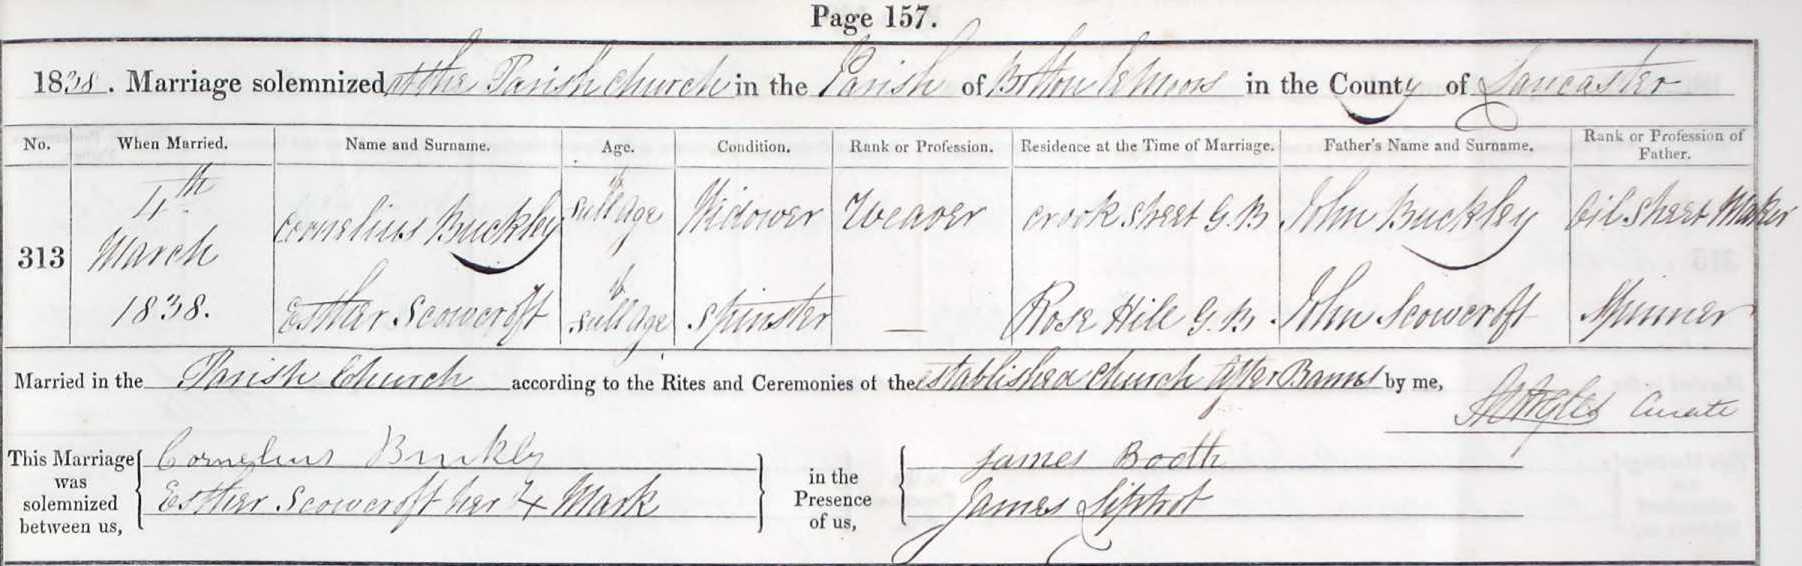 Page 157.
1838. Marriage solemnized at the Parish Church in the Parish of Bolton le Moors in the County of Lancaster
No. When Married. Name and Surname. Age. Condition. Rank or Profession. Residence at the Time of Marriage. Father's Name and Surname. Rank or Profession of Father.
313 4th March 1838. Cornelius Buckley full age Widower Weaver Crook Street G. B John Buckley Oil Sheet Maker
Esther Scowcroft full age Spinster — Rose Hill G. B. John Scowcroft Spinner
Married in the Parish Church according to the Rites and Ceremonies of the Established Church after Banns by me, Curate
This Marriage was solemnized between us,
Cornelius Buckly
Esther Scowcroft her X Mark
in the Presence of us,
James Booth
James Liptrot